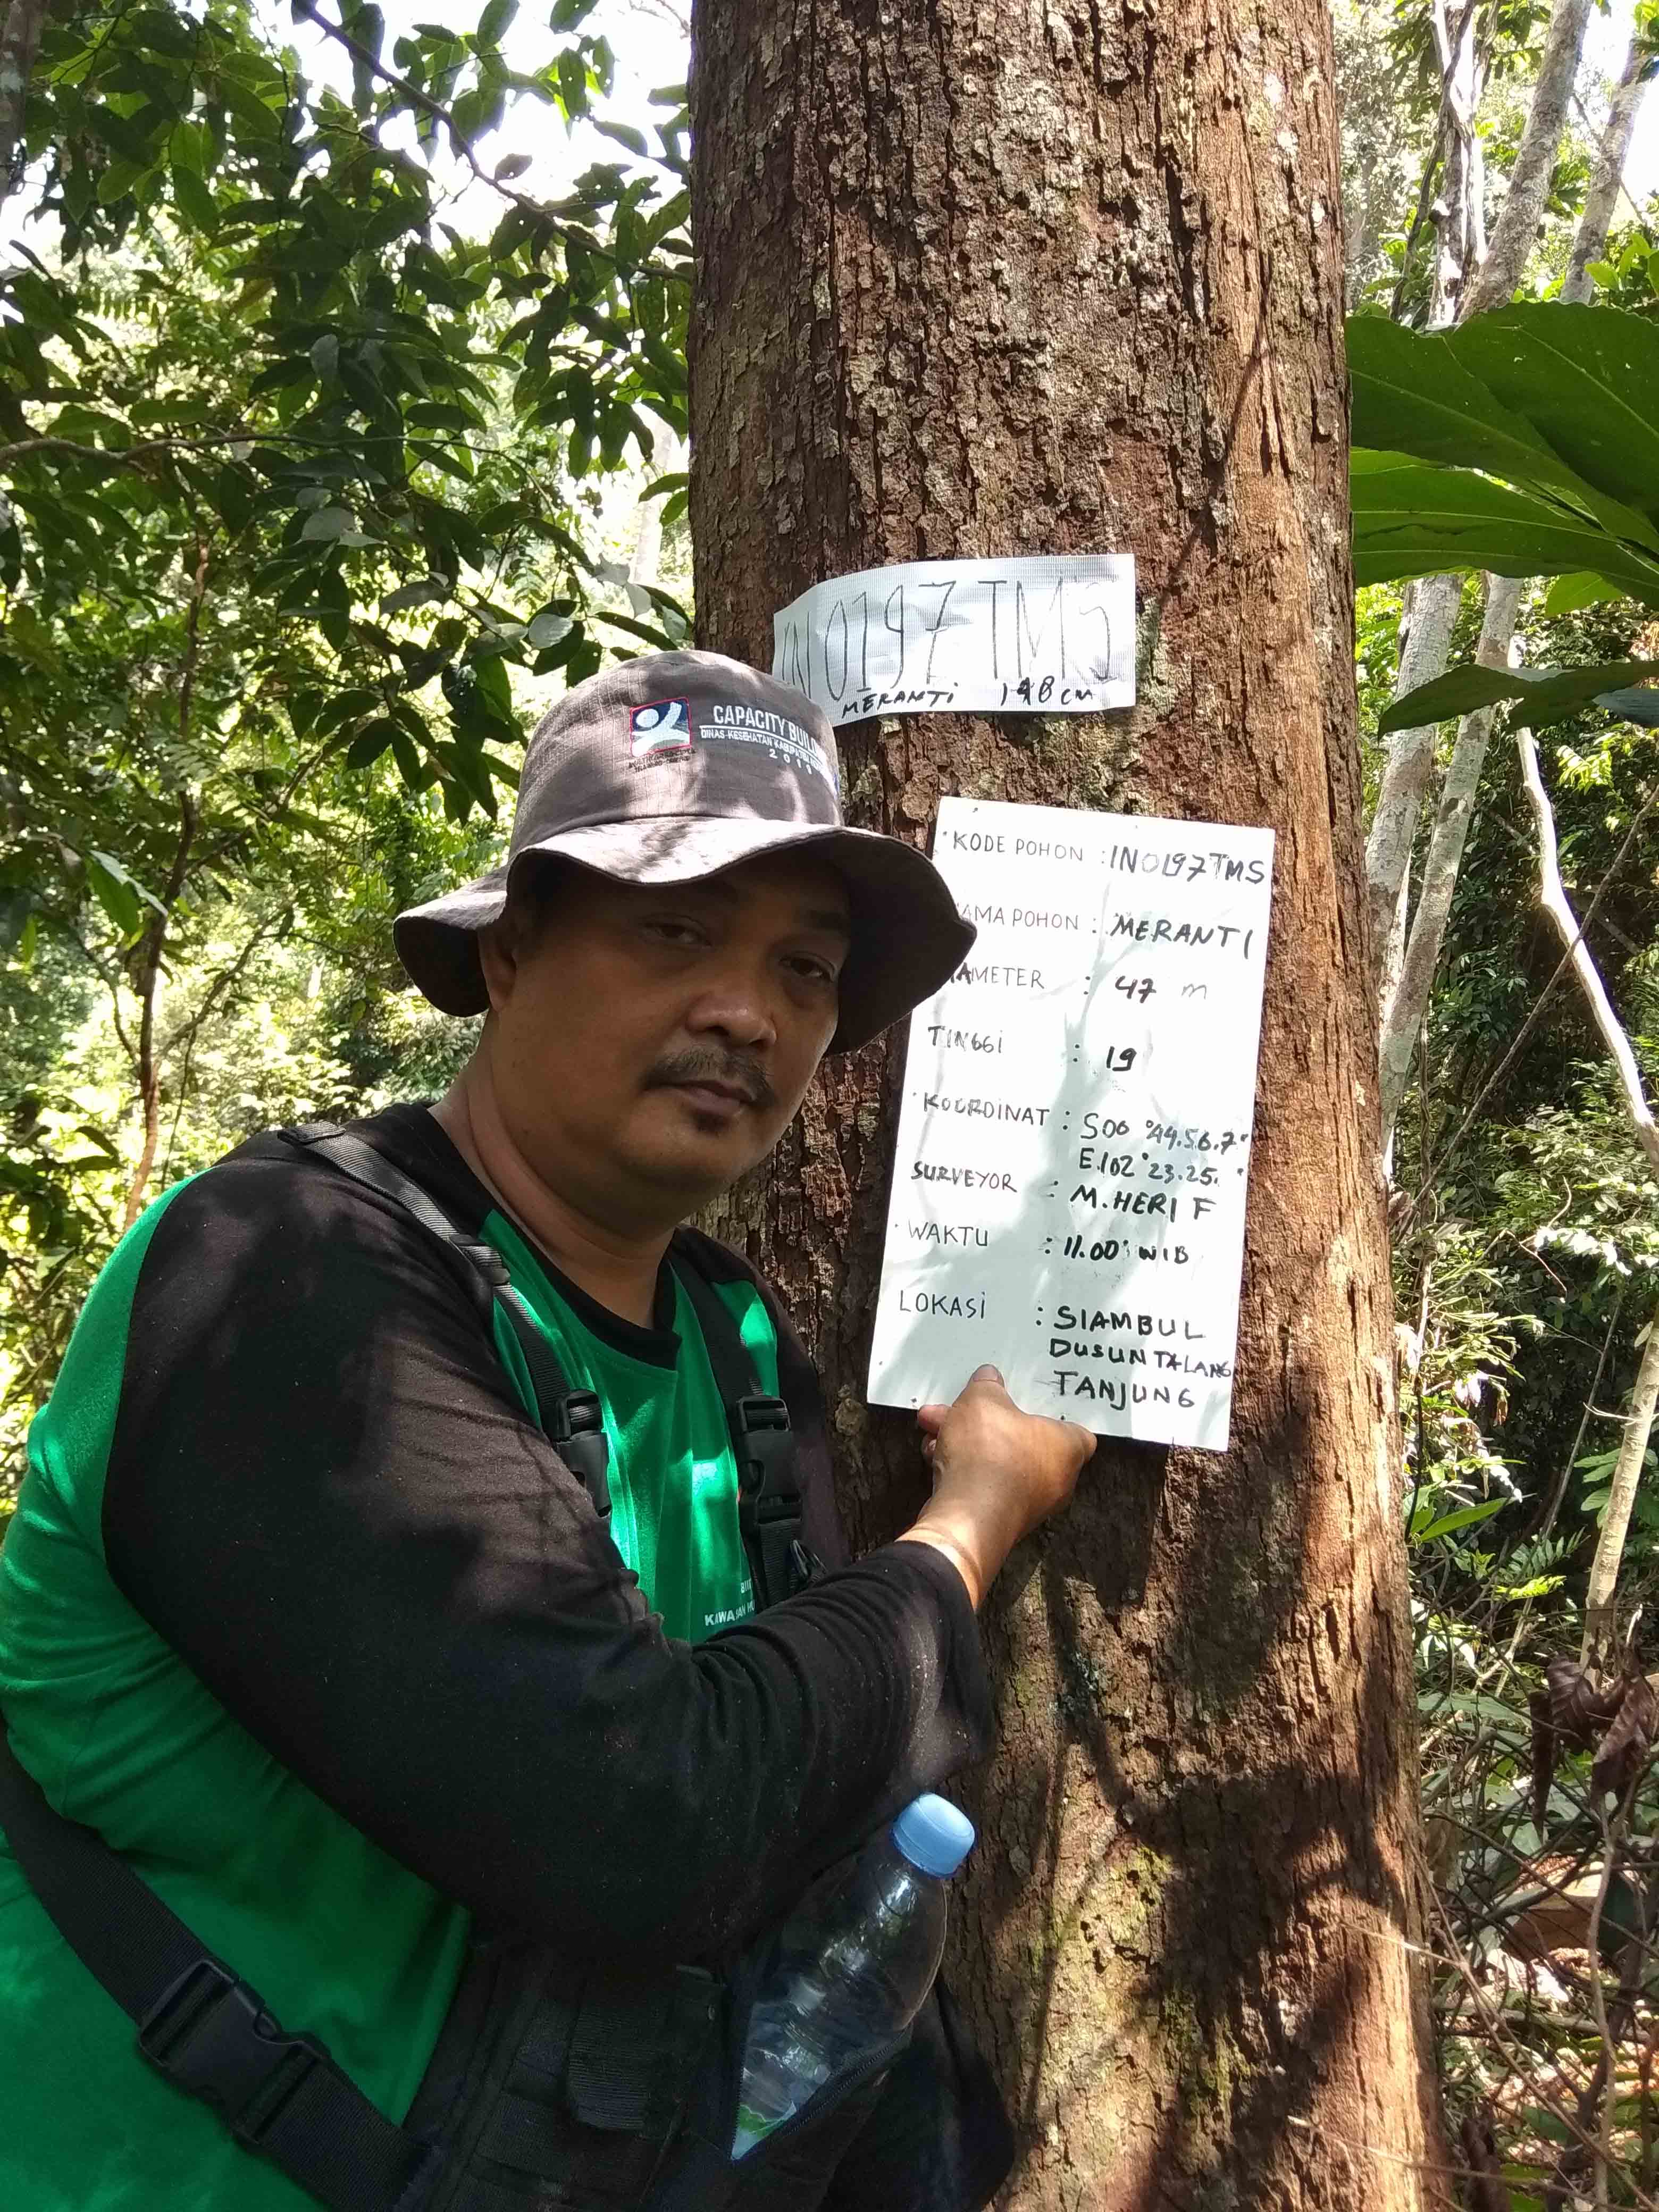 IN0197TMS
MERANTI 148 CM
CAPACITY BUIL
DINAS KESEHATAN KABUPATEN
201
• KODE POHON : IN0197TMS
AMA POHON : MERANTI
AMETER : 47 m
TINGGI : 19
• KOORDINAT : S00 °44.56.7"
E.102°23.25. "
SURVEYOR : M. HERI F
• WAKTU : 11.00 WIB
LOKASI : SIAMBUL
DUSUN TALANG
TANJUNG
KAWASAN HU